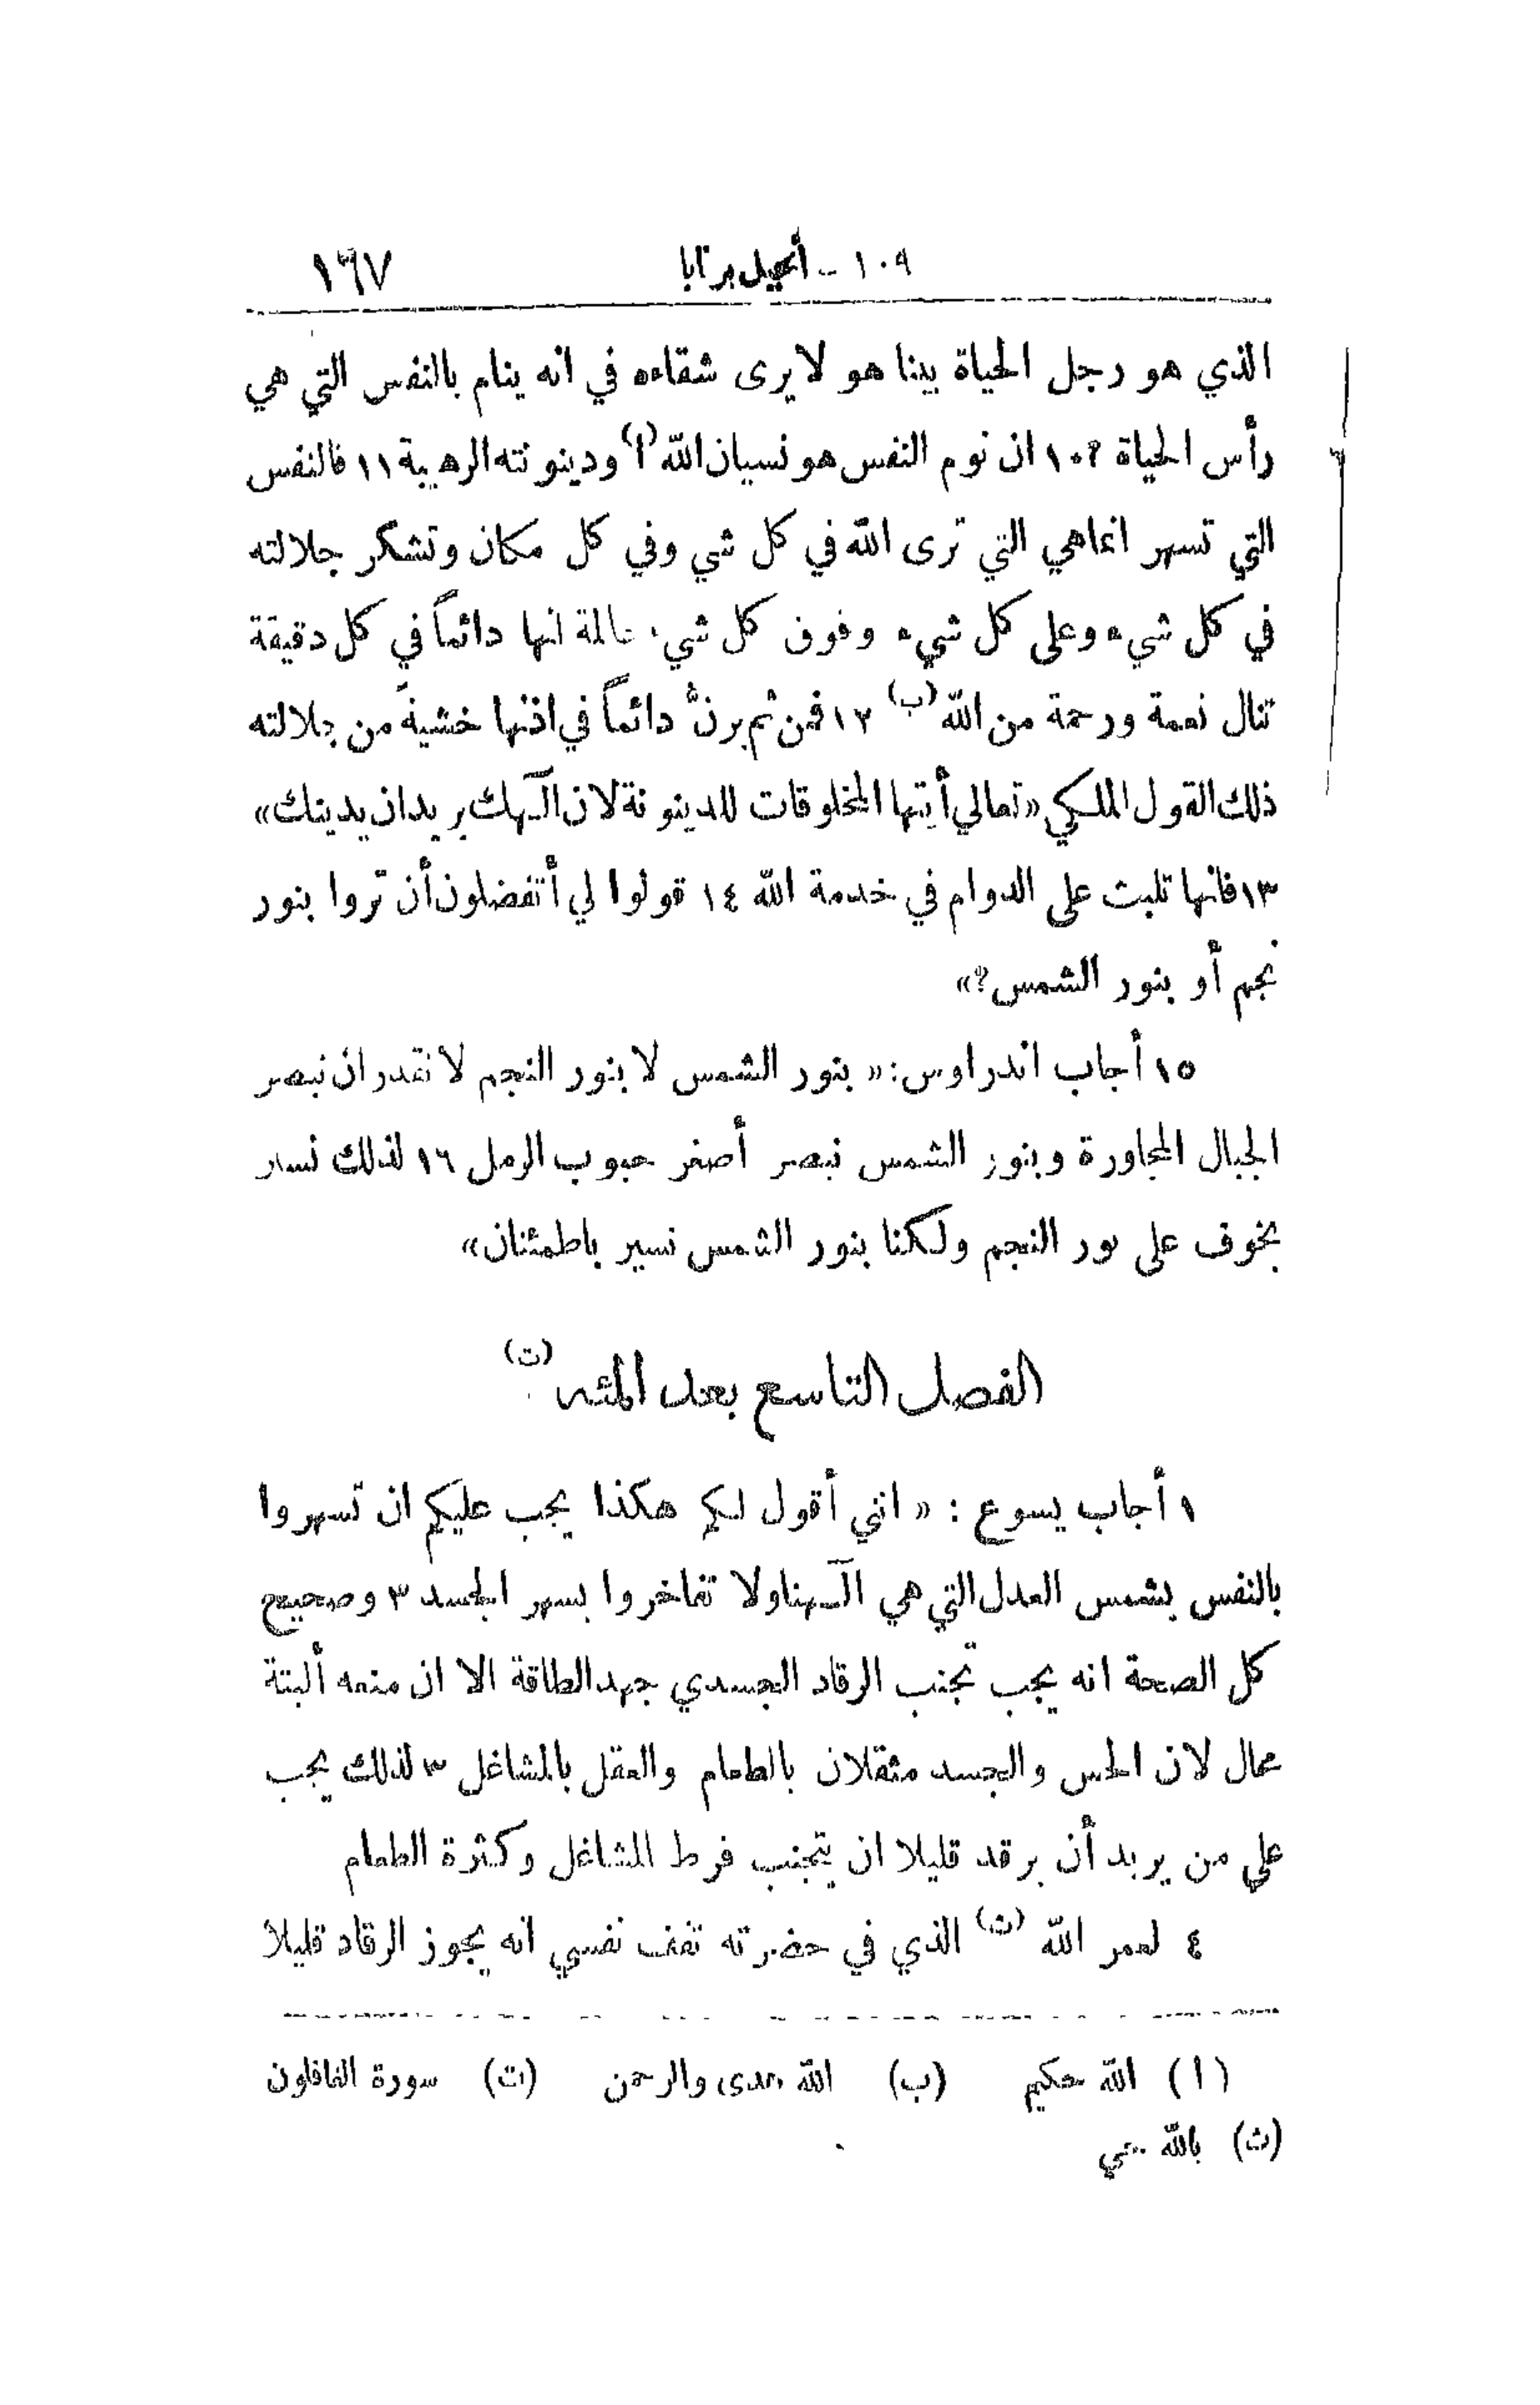 ١٠٩ - أنجيل برنابا ١٦٧
الذي هو رجل الحياة بينا هو لا يرى شقاءه في انه ينام بالنفس التي هي
رأس الحياة ؟ ١٠ ان نوم النفس هو نسيان الله (ا) ودينونته الرهيبة ١١ فالنفس
التي تسهر انما هي التي ترى الله في كل شي وفي كل مكان وتشكر جلالته
في كل شيء وعلى كل شيء وفوق كل شيء عالمة انها دائماً في كل دقيقة
تنال نعمة ورحمة من الله (ب) ١٢ فمن ثم يرنُّ دائماً في اذنها خشيةً من جلالته
ذلك القول الملكي «تعالي أيتها المخلوقات للدينونة لان آلهك يريد ان يدينك»
١٣ فانها تلبث على الدوام في خدمة الله ١٤ قولوا لي أتفضلون أن تروا بنور
نجم أو بنور الشمس؟»
١٥ أجاب اندراوس: « بنور الشمس لا بنور النجم لا نقدر ان نبصر
الجبال المجاورة وبنور الشمس نبصر أصغر حبوب الرمل ١٦ لذلك نسير
بخوف على نور النجم ولكنا بنور الشمس نسير باطمئنان»
الفصل التاسع بعد المئة (ت)
١ أجاب يسوع : « انني أقول لكم هكذا يجب عليكم ان تسهروا
بالنفس بشمس العدل التي هي آلهنا ولا تفاخروا بسهر الجسد ٣ وصحيح
كل الصحة انه يجب تجنب الرقاد الجسدي جهد الطاقة الا ان منعه ألبتة
محال لان الحس والجسد مثقلان بالطعام والعقل بالمشاغل ٣ لذلك يجب
على من يريد أن يرقد قليلا ان يتجنب فرط المشاغل وكثرة الطعام
٤ لعمر الله (ث) الذي في حضرته تقف نفسي انه يجوز الرقاد قليلا
(ا) الله حكيم (ب) الله والرحمن (ت) سورة الغافلون
(ث) بالله حي